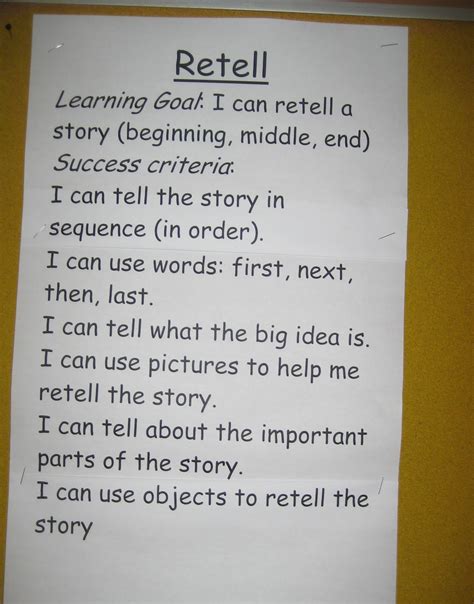 Retell
Learning Goal: I can retell a
story (beginning, middle, end)
Success criteria:
I can tell the story in
sequence (in order).
I can use words: first, next,
then, last.
I can tell what the big idea is.
I can use pictures to help me
retell the story.
I can tell about the important
parts of the story.
I can use objects to retell the
story